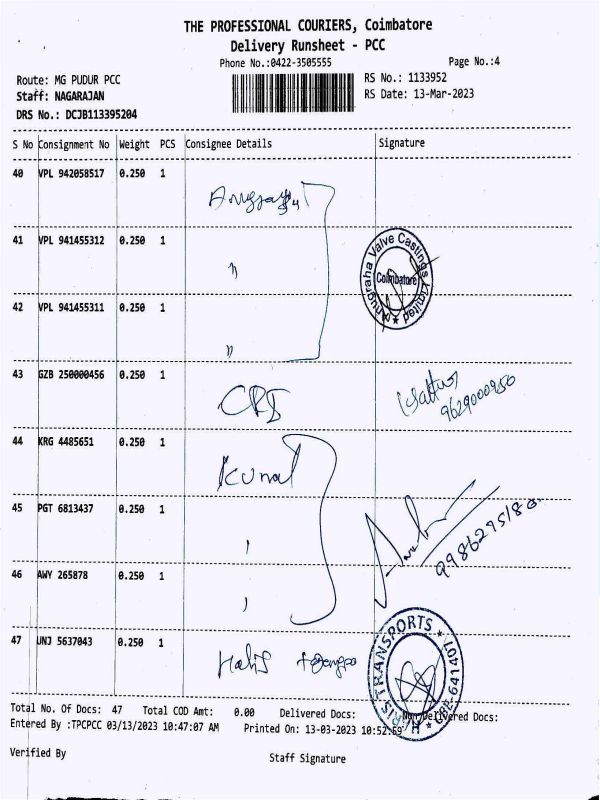 THE PROFESSIONAL COURIERS, Coimbatore
Delivery Runsheet - PCC
Phone No.:0422-3505555 Page No.:4
Route: MG PUDUR PCC RS No.: 1133952
Staff: NAGARAJAN RS Date: 13-Mar-2023
DRS No.: DCJB113395204
S No Consignment No Weight PCS Consignee Details Signature
40 VPL 942058517 0.250 1
41 VPL 941455312 0.250 1
"
Anugraha Valve Castings Limited
Coimbatore
42 VPL 941455311 0.250 1
"
43 GZB 250000456 0.250 1
CRI
9629000950
44 KRG 4485651 0.250 1
Kunal
45 PGT 6813437 0.250 1
46 AWY 265878 0.250 1
47 UNJ 5637043 0.250 1
TRANSPORTS
CBE-641401
Total No. Of Docs: 47 Total COD Amt: 0.00 Delivered Docs: Non Delivered Docs:
Entered By :TPCPCC 03/13/2023 10:47:07 AM Printed On: 13-03-2023 10:52:59
Verified By Staff Signature